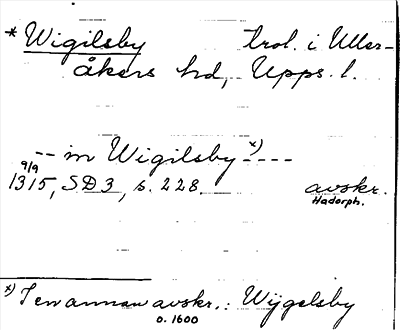 * Wigilsby trol. i Uller-
åkers hd, Upps. l.
-- in Wigilsby x) ----
9/9
1315, SD 3, s. 228. avskr.
Hadorph.
x) I en annan avskr.: Wijgelsby
o. 1600